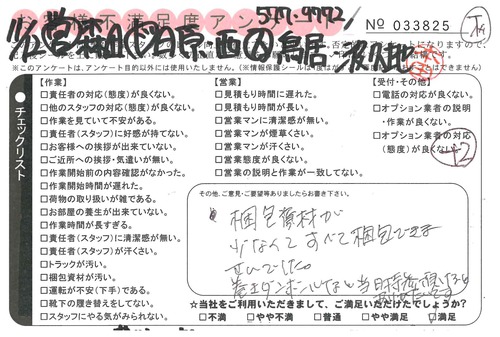 お客様不満足度アン
577-9992/
No 033825
11/12 営 森山 作 石原 西 鳥居
※このアンケートは、アンケート目的以外には使用いたしません。
チェックリスト
【作業】
□責任者の対応(態度)が良くない。
□他のスタッフの対応(態度)が良くない。
□作業を見ていて不安がある。
□責任者(スタッフ)に好感が持てない。
□お客様への挨拶が出来ていない。
□ご近所への挨拶・気遣いが無い。
□作業開始前の内容確認がなかった。
□作業開始時間が遅れた。
□荷物の取り扱いが雑である。
□お部屋の養生が出来ていない。
□作業時間が長すぎる。
□責任者(スタッフ)に清潔感が無い。
□責任者(スタッフ)が汗くさい。
□トラックが汚い。
□梱包資材が汚い。
□運転が不安(下手)である。
□靴下の履き替えをしてない。
□スタッフにやる気がみられない。
【営業】
□見積もり時間に遅れた。
□見積もり時間が長い。
□営業マンに清潔感が無い。
□営業マンが煙草くさい。
□営業マンが汗くさい。
□営業態度が良くない。
□営業の説明と作業が一致してない。
【受付・その他】
□電話の対応が良くない。
□オプション業者の説明
・作業が良くない。
□オプション業者の対応
(態度)が良くない。
42
その他、ご意見・ご要望等ありましたらお書き下さい。
梱包資材が
少なくてすべて梱包できま
せんでした
☆当社をご利用いただきまして、ご満足いただけたでしょうか?
□不満 □やや不満 □普通 □やや満足 ☑満足